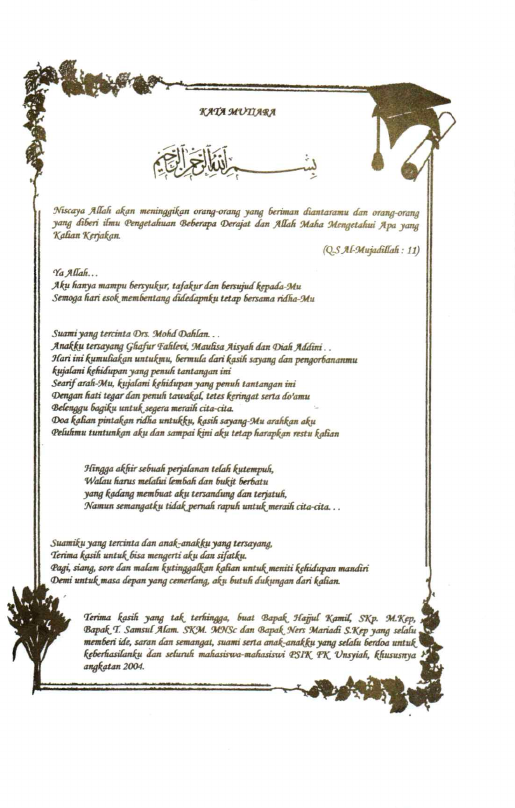 KATA MUTIARA
بِسْمِ اللَّهِ الرَّحْمَنِ الرَّحِيمِ
Niscaya Allah akan meninggikan orang-orang yang beriman diantaramu dan orang-orang
yang diberi ilmu Pengetahuan Beberapa Derajat dan Allah Maha Mengetahui Apa yang
Kalian Kerjakan.
(Q.S Al-Mujadillah : 11)
Ya Allah...
Aku hanya mampu bersyukur, tafakur dan bersujud kepada-Mu
Semoga hari esok membentang didedapnku tetap bersama ridha-Mu
Suami yang tercinta Drs. Mohd Dahlan. . .
Anakku tersayang Ghafur Fahlevi, Maulisa Aisyah dan Diah Addini . .
Hari ini kumuliakan untukmu, bermula dari kasih sayang dan pengorbananmu
kujalani kehidupan yang penuh tantangan ini
Searif arah-Mu, kujalani kehidupan yang penuh tantangan ini
Dengan hati tegar dan penuh tawakal, tetes keringat serta do'amu
Belenggu bagiku untuk segera meraih cita-cita.
Doa kalian pintakan ridha untukku, kasih sayang-Mu arahkan aku
Peluhmu tuntunkan aku dan sampai kini aku tetap harapkan restu kalian
Hingga akhir sebuah perjalanan telah kutempuh,
Walau harus melalui lembah dan bukit berbatu
yang kadang membuat aku tersandung dan terjatuh,
Namun semangatku tidak pernah rapuh untuk meraih cita-cita. . .
Suamiku yang tercinta dan anak-anakku yang tersayang,
Terima kasih untuk bisa mengerti aku dan sifatku.
Pagi, siang, sore dan malam kutinggalkan kalian untuk meniti kehidupan mandiri
Demi untuk masa depan yang cemerlang, aku butuh dukungan dari kalian.
Terima kasih yang tak terhingga, buat Bapak Hajjul Kamil, SKp. M.Kep,
Bapak T. Samsul Alam. SKM. MNSc dan Bapak Ners Mariadi S.Kep yang selalu
memberi ide, saran dan semangat, suami serta anak-anakku yang selalu berdoa untuk
keberhasilanku dan seluruh mahasiswa-mahasiswi PSIK FK Unsyiah, khususnya
angkatan 2004.